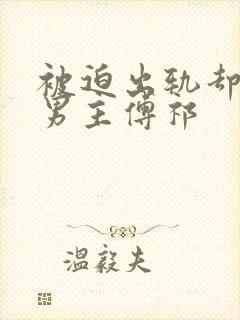 被迫出轨却
男主傅祁
温毅夫